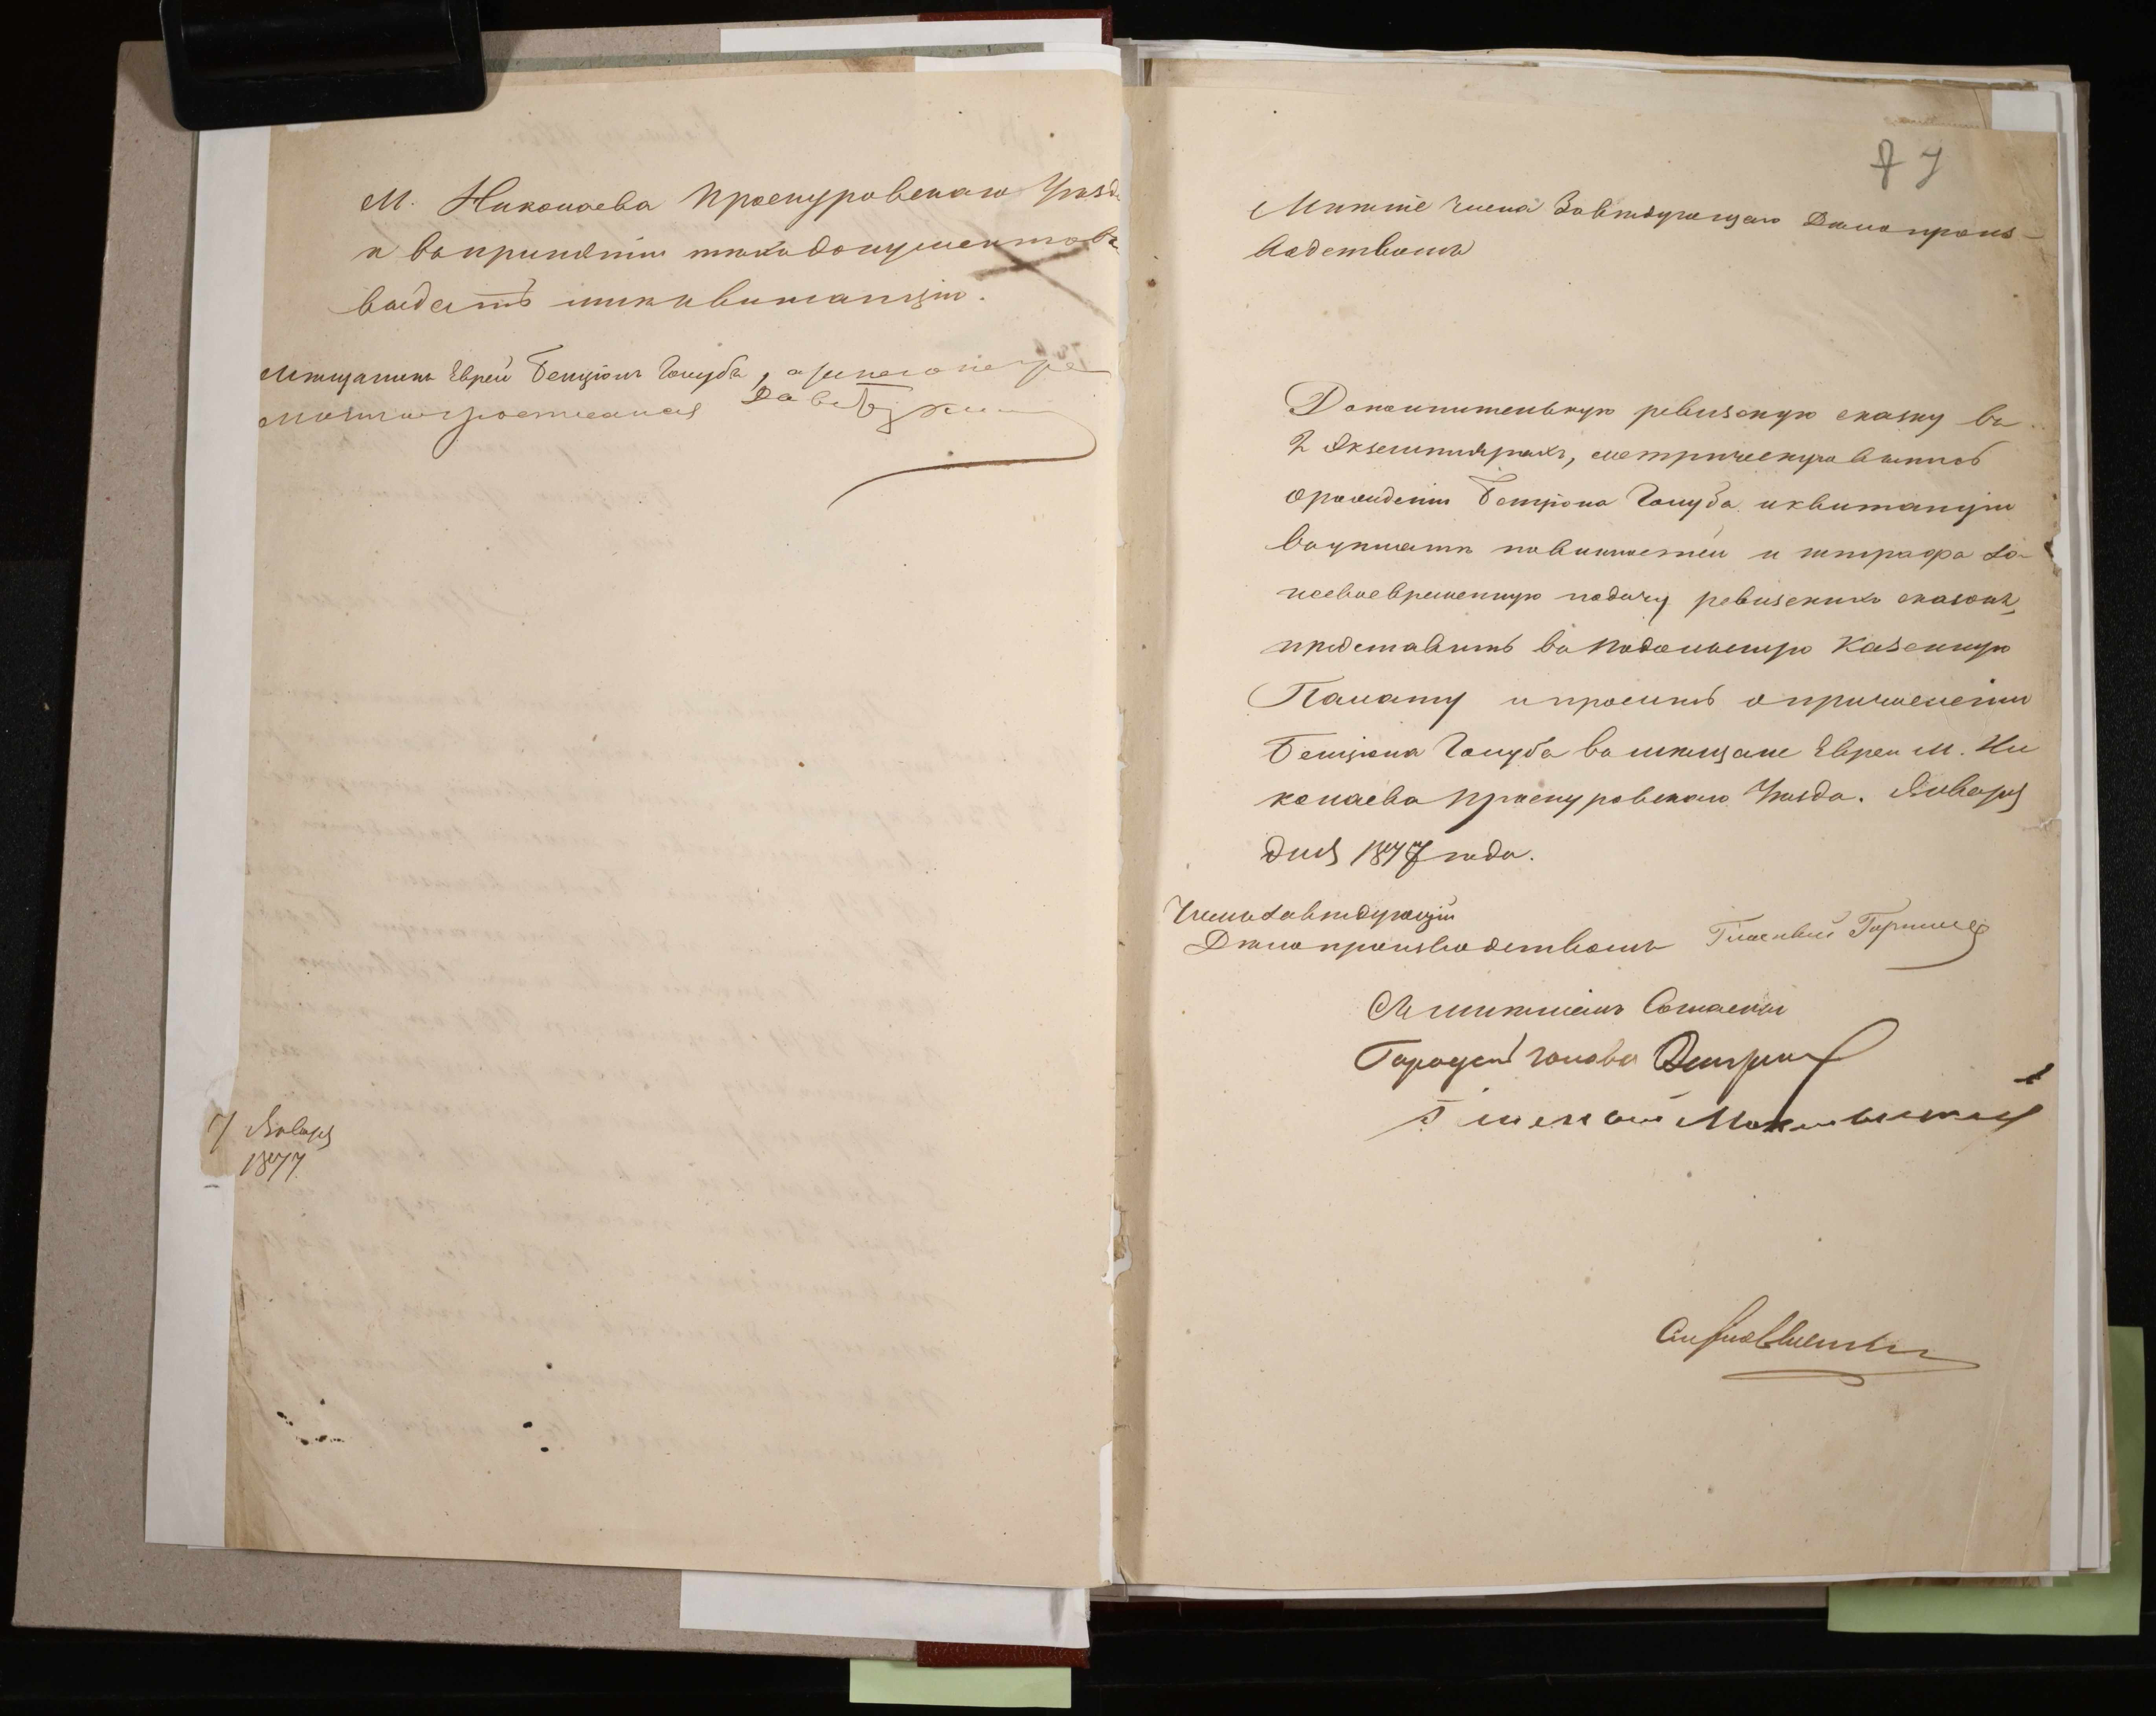 М. Николаева Проскуровскаго Уѣзда
и въ принятіи такихъ документовъ
выдать мнѣ квитанцію.
Мѣщанинъ Еврей Бенціонъ Голубъ, а за него негра
мотнаго росписался
7 Января
1877
87
Мнѣніе Члена Завѣдующаго Дѣлопроиз-
водствомъ
Дополнительную ревизскую сказку въ
2 Экземплярахъ, метрическую выпись
о рожденіи Бенціона Голуба и квитанціи
въ уплатѣ повинностей и штрафа за
несвоевременную подачу ревизскихъ сказокъ,
представить въ Подольскую Казенную
Палату и просить о причисленіи
Бенціона Голуба въ мѣщане Евреи М. Ни
колаева Проскуровскаго Уѣзда. Января
дня 1877 года.
Членъ Завѣдующій
Дѣлопроизводствомъ Гласный
Съ мнѣніемъ Согласны
Городской Голова
Гласный